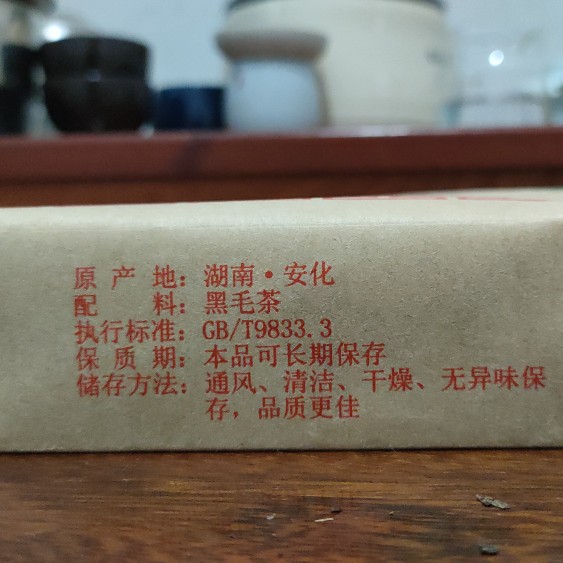 原产地：湖南·安化
配料：黑毛茶
执行标准：GB/T9833.3
保质期：本品可长期保存
储存方法：通风、清洁、干燥、无异味保
存，品质更佳